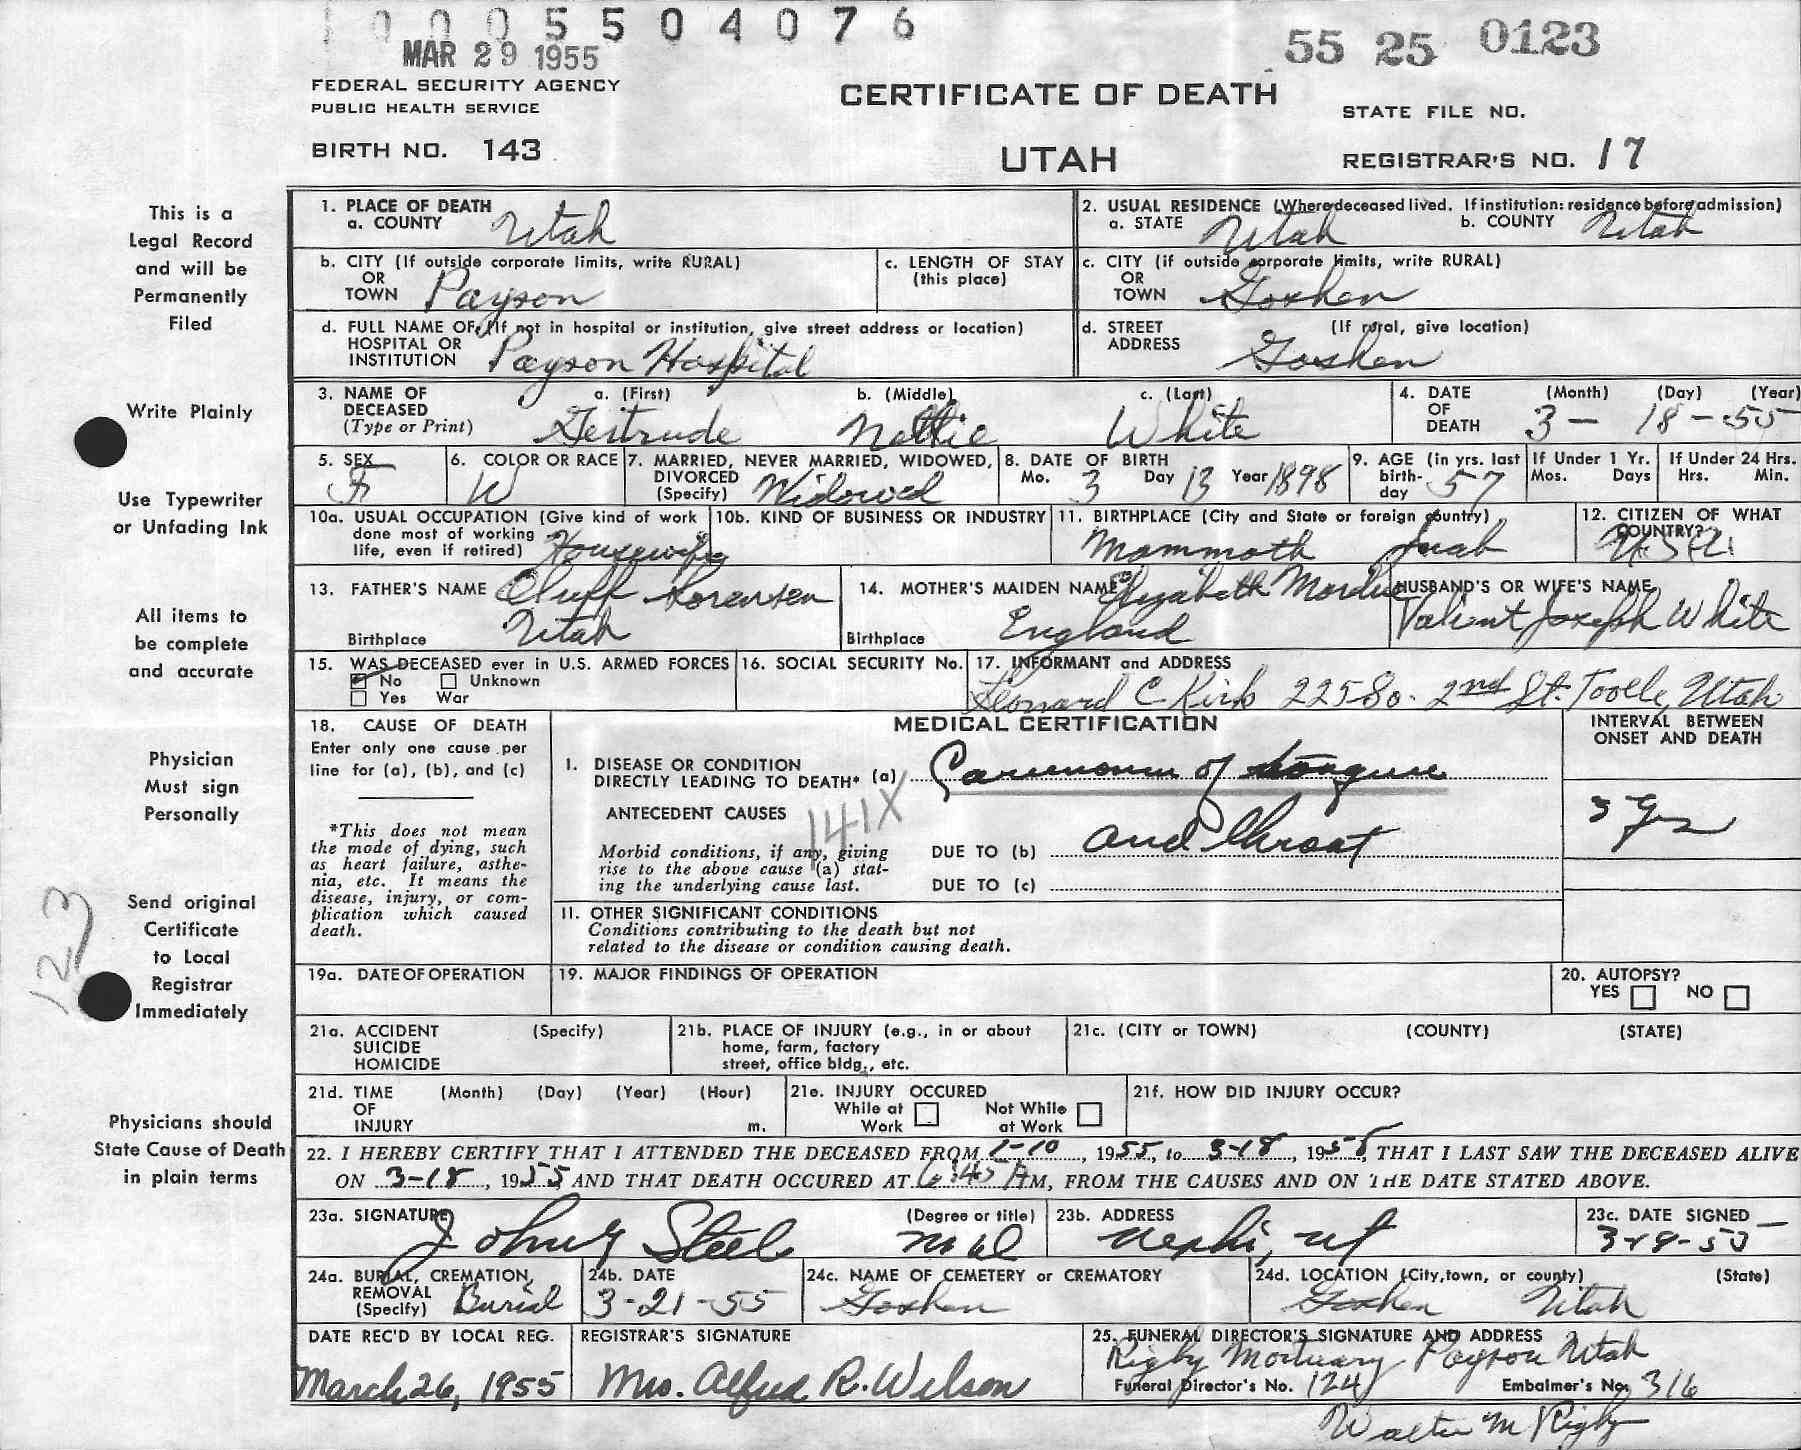 0005504076
MAR 29 1955
55 25 0123
FEDERAL SECURITY AGENCY
PUBLIC HEALTH SERVICE
CERTIFICATE OF DEATH
STATE FILE NO.
BIRTH NO. 143
UTAH
REGISTRAR'S NO. 17
This is a
Legal Record
and will be
Permanently
Filed
Write Plainly
Use Typewriter
or Unfading Ink
All items to
be complete
and accurate
Physician
Must sign
Personally
Send original
Certificate
to Local
Registrar
Immediately
123
Physicians should
State Cause of Death
in plain terms
1. PLACE OF DEATH
a. COUNTY Utah
2. USUAL RESIDENCE (Where deceased lived. If institution: residence before admission)
a. STATE Utah b. COUNTY Utah
b. CITY (If outside corporate limits, write RURAL)
OR
TOWN Payson
c. LENGTH OF STAY
(this place)
c. CITY (if outside corporate limits, write RURAL)
OR
TOWN Goshen
d. FULL NAME OF (If not in hospital or institution, give street address or location)
HOSPITAL OR
INSTITUTION Payson Hospital
d. STREET (If rural, give location)
ADDRESS Goshen
3. NAME OF a. (First) b. (Middle) c. (Last)
DECEASED
(Type or Print) Gertrude Nettie White
4. DATE (Month) (Day) (Year)
OF
DEATH 3 - 18 - 55
5. SEX
F
6. COLOR OR RACE
W
7. MARRIED, NEVER MARRIED, WIDOWED,
DIVORCED
(Specify) Widowed
8. DATE OF BIRTH
Mo. 3 Day 13 Year 1898
9. AGE (in yrs. last
birth-
day 57
If Under 1 Yr.
Mos. Days
If Under 24 Hrs.
Hrs. Min.
10a. USUAL OCCUPATION (Give kind of work
done most of working
life, even if retired) Housewife
10b. KIND OF BUSINESS OR INDUSTRY
11. BIRTHPLACE (City and State or foreign country)
Mammoth Juab
12. CITIZEN OF WHAT
COUNTRY?
U.S.A.
13. FATHER'S NAME Oluff Sorensen
Birthplace Utah
14. MOTHER'S MAIDEN NAME Elizabeth
Birthplace England
HUSBAND'S OR WIFE'S NAME
Valient Joseph White
15. WAS DECEASED ever in U.S. ARMED FORCES
No Unknown
Yes War
16. SOCIAL SECURITY No.
17. INFORMANT and ADDRESS
Leonard C. Kirk 225 So. 2nd St. Tooele, Utah
18. CAUSE OF DEATH
Enter only one cause per
line for (a), (b), and (c)
*This does not mean
the mode of dying, such
as heart failure, asthe-
nia, etc. It means the
disease, injury, or com-
plication which caused
death.
MEDICAL CERTIFICATION
INTERVAL BETWEEN
ONSET AND DEATH
I. DISEASE OR CONDITION
DIRECTLY LEADING TO DEATH* (a) Carcinoma of tongue
ANTECEDENT CAUSES
141X
3 yrs
Morbid conditions, if any, giving
rise to the above cause (a) stat-
ing the underlying cause last.
DUE TO (b) and throat
DUE TO (c)
II. OTHER SIGNIFICANT CONDITIONS
Conditions contributing to the death but not
related to the disease or condition causing death.
19a. DATE OF OPERATION
19. MAJOR FINDINGS OF OPERATION
20. AUTOPSY?
YES NO
21a. ACCIDENT (Specify)
SUICIDE
HOMICIDE
21b. PLACE OF INJURY (e.g., in or about
home, farm, factory
street, office bldg., etc.
21c. (CITY or TOWN) (COUNTY) (STATE)
21d. TIME (Month) (Day) (Year) (Hour)
OF
INJURY m.
21e. INJURY OCCURED
While at Work
Not While at Work
21f. HOW DID INJURY OCCUR?
22. I HEREBY CERTIFY THAT I ATTENDED THE DECEASED FROM 1-10, 1955, to 3-18, 1955, THAT I LAST SAW THE DECEASED ALIVE
ON 3-18, 1955 AND THAT DEATH OCCURED AT 6:45 AM, FROM THE CAUSES AND ON THE DATE STATED ABOVE.
23a. SIGNATURE (Degree or title)
Steele MD
23b. ADDRESS
Nephi, Ut
23c. DATE SIGNED
24a. BURIAL, CREMATION,
REMOVAL
(Specify) Burial
24b. DATE
3-21-55
24c. NAME OF CEMETERY or CREMATORY
Goshen
24d. LOCATION (City, town, or county) (State)
Goshen Utah
DATE REC'D BY LOCAL REG.
March 26, 1955
REGISTRAR'S SIGNATURE
Mrs. Alfred R. Wilson
25. FUNERAL DIRECTOR'S SIGNATURE AND ADDRESS
Rigby Mortuary Payson Utah
Funeral Director's No. 124 Embalmer's No. 316
Walter M Rigby